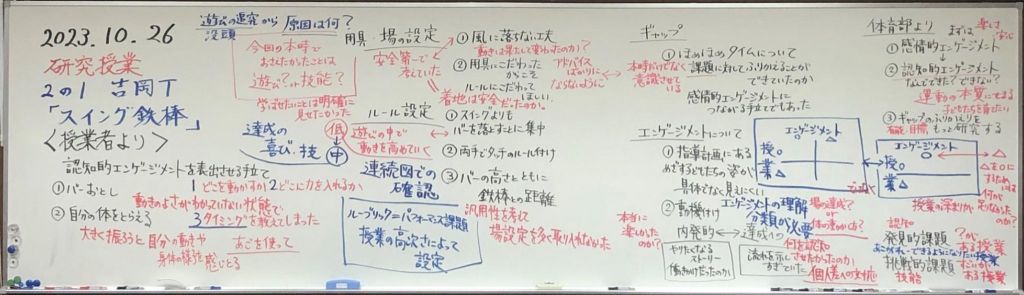 2023.10.26
研究授業
2の1 吉岡T
「スイング鉄棒」
<授業者より>
認知的エンゲージメントを表出させる手立て
①バーおとし
1どこを動かすか
2どこに力を入れるか
動きのよさがわかっていない状態で、
3タイミングを教えてしまった
②自分の体をとらえる
大きく振ろうと自分の動きや
身体の様子を感じとる
あごを使って
遊びの追究から
没頭
原因は何?
今回の本時で
おさえたかったことは
遊び?、技能?
学ばせたいことは明確に
見せたかった
達成の
喜び・技
低
↓
中
遊びの中で
動きを高めていく
連続図での
確認
ルーブリック=パフォーマンス課題
授業の高次さによって
設定
用具・場の設定
安全第一で
考えていた
①風に落ちない工夫
動きは果たして変わったのか?
②用具にこだわった
がこそ
ルールにこだわって
ほしい
着地は安全だったのか。
アドバイス
ばかりに
ならないように
ルール設定
①スイングよりも
バーを落とすことに集中
②両手でタッチのルール付け
③バーの高さとともに
鉄棒との距離
汎用性を考えて
場設定を多く取り入れなかった
ギャップ
①ほめほめタイムについて
課題に対してふりかえることが
できていたのか
本時だけでなく
意識させている
感情的エンゲージメントに
つながる手立てでもあった
エンゲージメントについて
①指導計画にある
めざす子どもたちの姿が
具体でなく見えにくい
②動機付け
エンゲージメントの理解
分類が必要
内発的
達成
本当に
楽しかったのか?
やりたくなる
ストーリー
働きかけだったのか
流れを示し
すぎていた
何を認知
させたかったのか
個人差への対応
場の達成?
or
体の動かし方?
エンゲージメント
授○
業△
エンゲージメント
授○
業△
△を○に
するためには
何が
足りなかった
のか?
授業の深まりが
体育部より
まずは
楽しさ
安心
①感情的エンゲージメント
②認知的エンゲージメント
なんでできた?できない?
運動の本質にせまる
子どもたちを育てたい
③ギャップのふりかえりを
もっと研究する
有能・目標
認知
発見的課題
?が
ある授業
あこがれ・できるようになりたい授業
挑戦的課題
技能
すごいが
ある授業